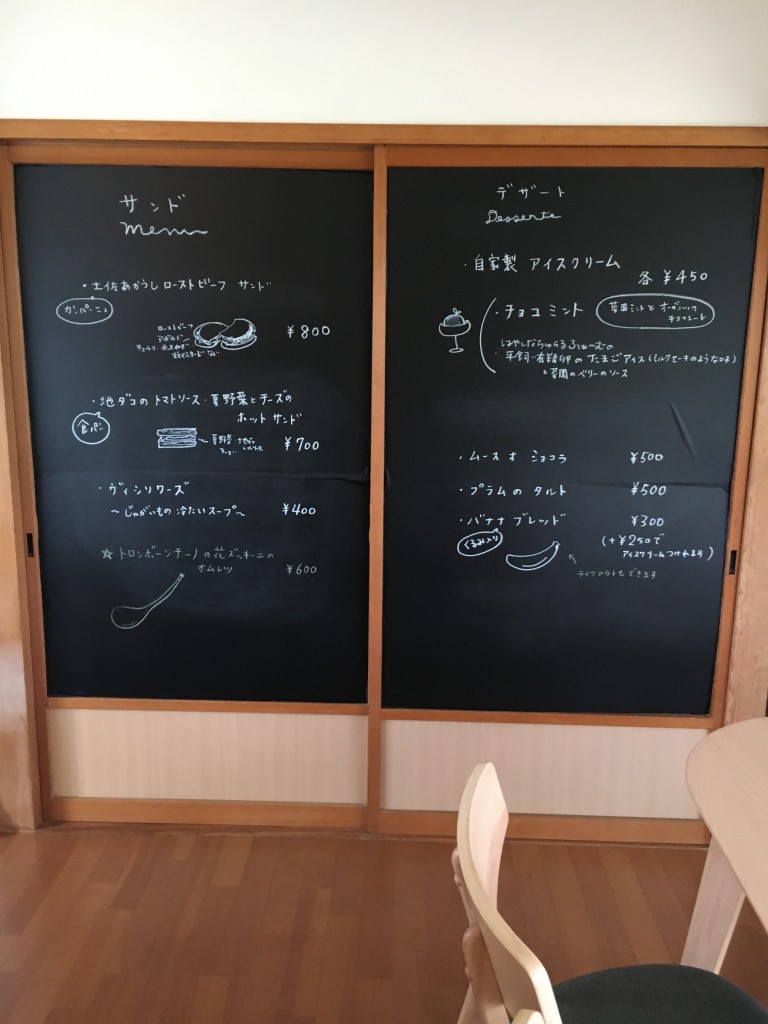 サンド
menu
・土佐あかうしローストビーフ サンド
カンパーニュ
ローストビーフ
¥800
・地ダコのトマトソース・夏野菜とチーズの
ホットサンド
食パン
¥700
・ヴィシソワーズ
〜じゃがいもの冷たいスープ〜 ¥400
☆トロンボーンチーノの花ズッキーニの
オムレツ ¥600
デザート
Desserte
・自家製 アイスクリーム
各 ¥450
・チョコミント
菜園ミントと オーガニック
チョコレート
・平飼い有精卵のたまごアイス(ミルクセーキのような味)
と菜園のベリーのソース
・ムースオ ショコラ ¥500
・プラムのタルト ¥500
・バナナブレッド ¥300
くるみ入り
(+¥250で
アイスクリームつけれます)
テイクアウトもできます